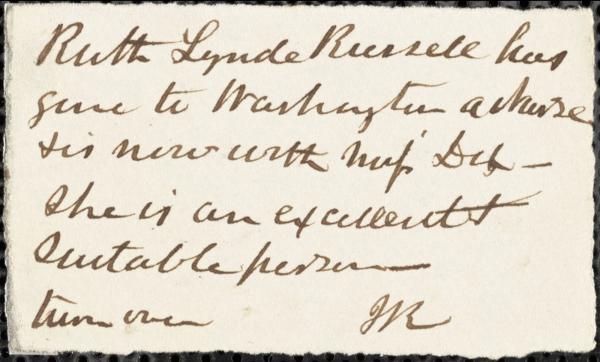 Ruth Lynde Russell has
gone to Washington a Nurse
& is now with Miss Dix —
She is an excellent &
Suitable person —
turn over JR